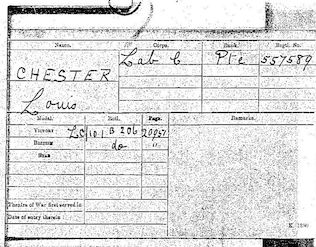 Name. Corps. Rank. Regtl. No.
CHESTER Lab C Pte 557589
Louis
Medal. Roll. Page. Remarks.
Victory LC/101 B206 20957
British do "
Star
Theatre of War first served in
Date of entry therein